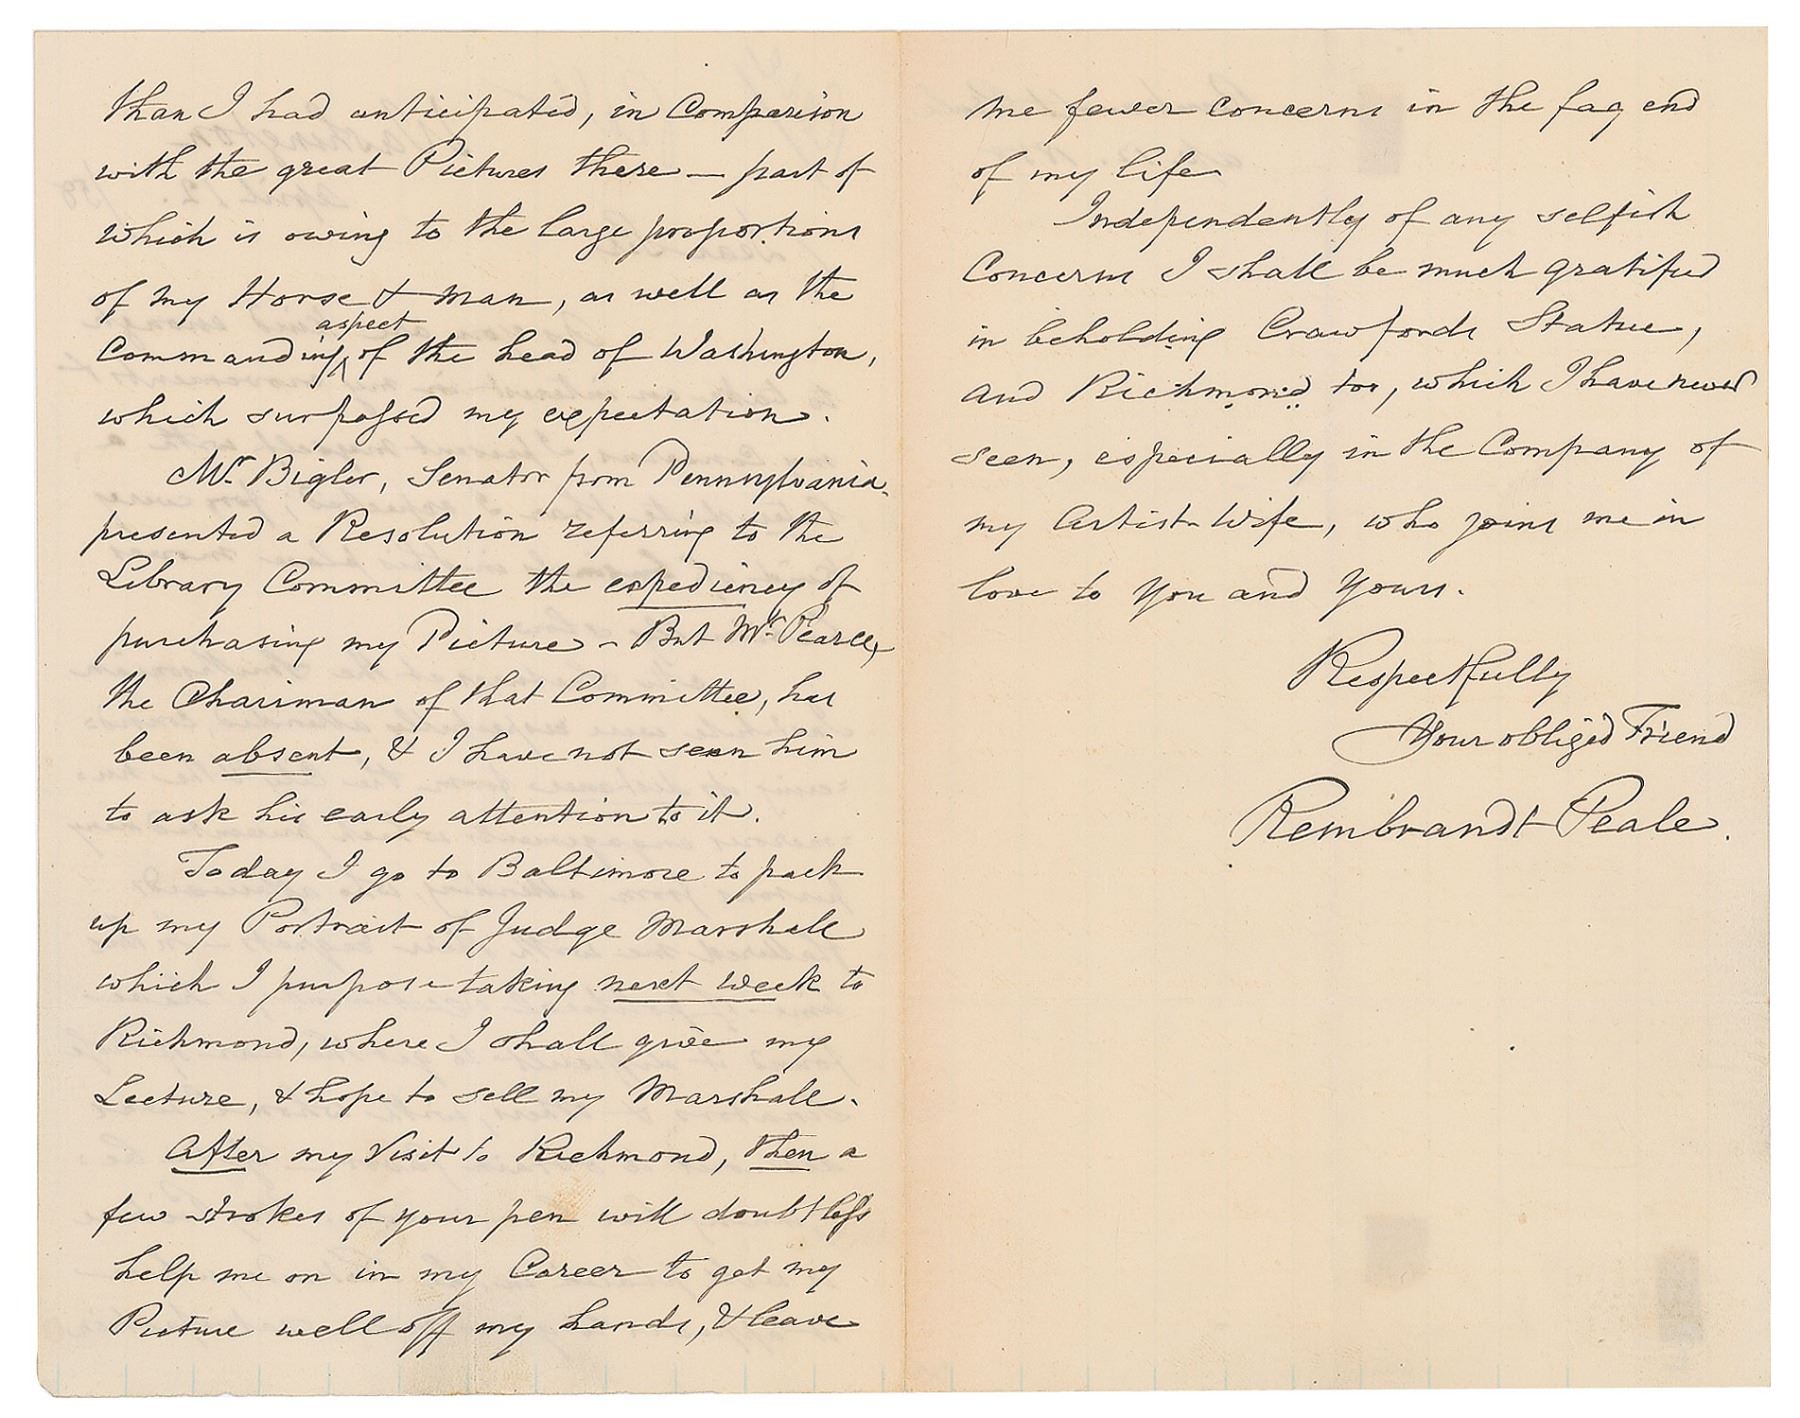 than I had anticipated, in Comparison
with the great Pictures there — part of
which is owing to the large proportions
of my Horse & man, as well as the
aspect
Commanding ^ of the head of Washington,
which surpassed my expectation.
Mr. Bigler, Senator from Pennsylvania,
presented a Resolution referring to the
Library Committee the expediency of
purchasing my Picture – But Mr. Pearce,
the Chairman of that Committee, has
been absent, & I have not seen him
to ask his early attention to it.
Today I go to Baltimore to pack
up my Portrait of Judge Marshall
which I purpose taking next week to
Richmond, where I shall give my
Lecture, & hope to sell my Marshall.
After my Visit to Richmond, then a
few strokes of your pen will doubtless
help me on in my Career to get my
Picture well off my hands, & leave
me fewer concerns in the fag end
of my life
Independently of any selfish
Concerns I shall be much gratified
in beholding Crawfords Statue,
and Richmond too, which I have never
seen, especially in the Company of
my Artist-Wife, who joins me in
love to you and yours.
Respectfully
Your obliged Friend
Rembrandt Peale.